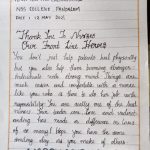 NSS COLLEGE PANDALAM
DATE : 12 MAY 2021
Thank You To Nurses
Our Front Line Heroes
You don't just help patients heal physically
but you also help them become stronger
individuals with strong mind. Things are
much easier and comfortable with a nurse
like you who is there to do her job with
responsibility. You are really one of the best
nurses. Your gender care, love and
or many! Hope you have the same
smiling day as you make of others